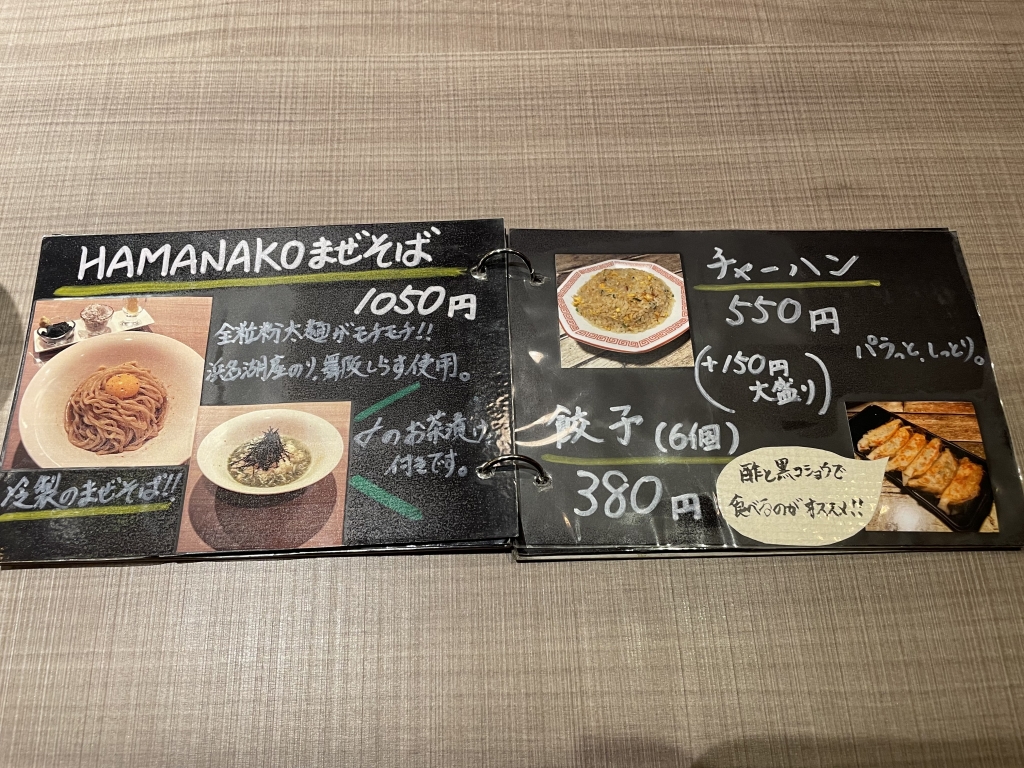 HAMANAKOまぜそば
1050円
全粒粉太麺がモチモチ!!
浜名湖産のり、舞阪しらす使用。
〆のお茶漬け
付きです。
冷製のまぜそば!!
チャーハン
550円
パラっと、しっとり。
(+150円
大盛り)
餃子(6個)
380円
酢と黒コショウで
食べるのがオススメ!!